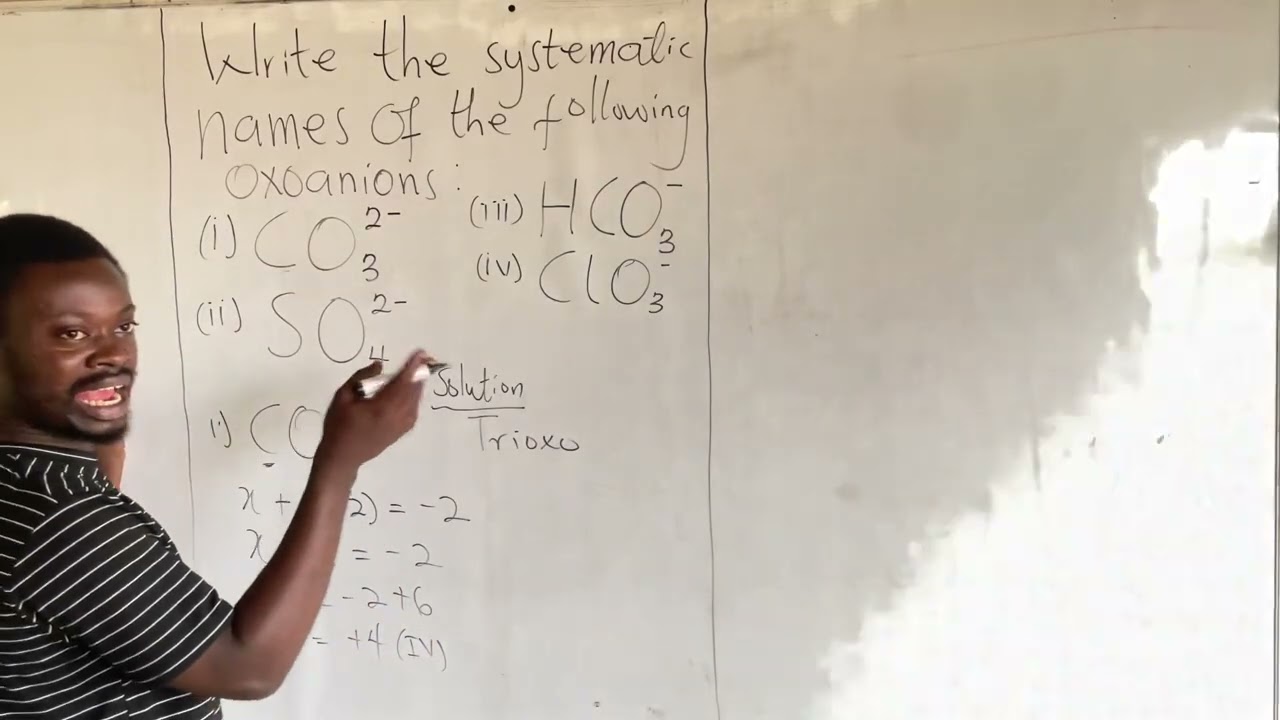 Write the systematic
names of the following
oxoanions:
(i) CO₃²⁻
(ii) SO₄²⁻
(iii) HCO₃⁻
(iv) ClO₃⁻
Solution
i) CO
Trioxo
x + 2) = -2
x = -2
= -2+6
= +4 (IV)